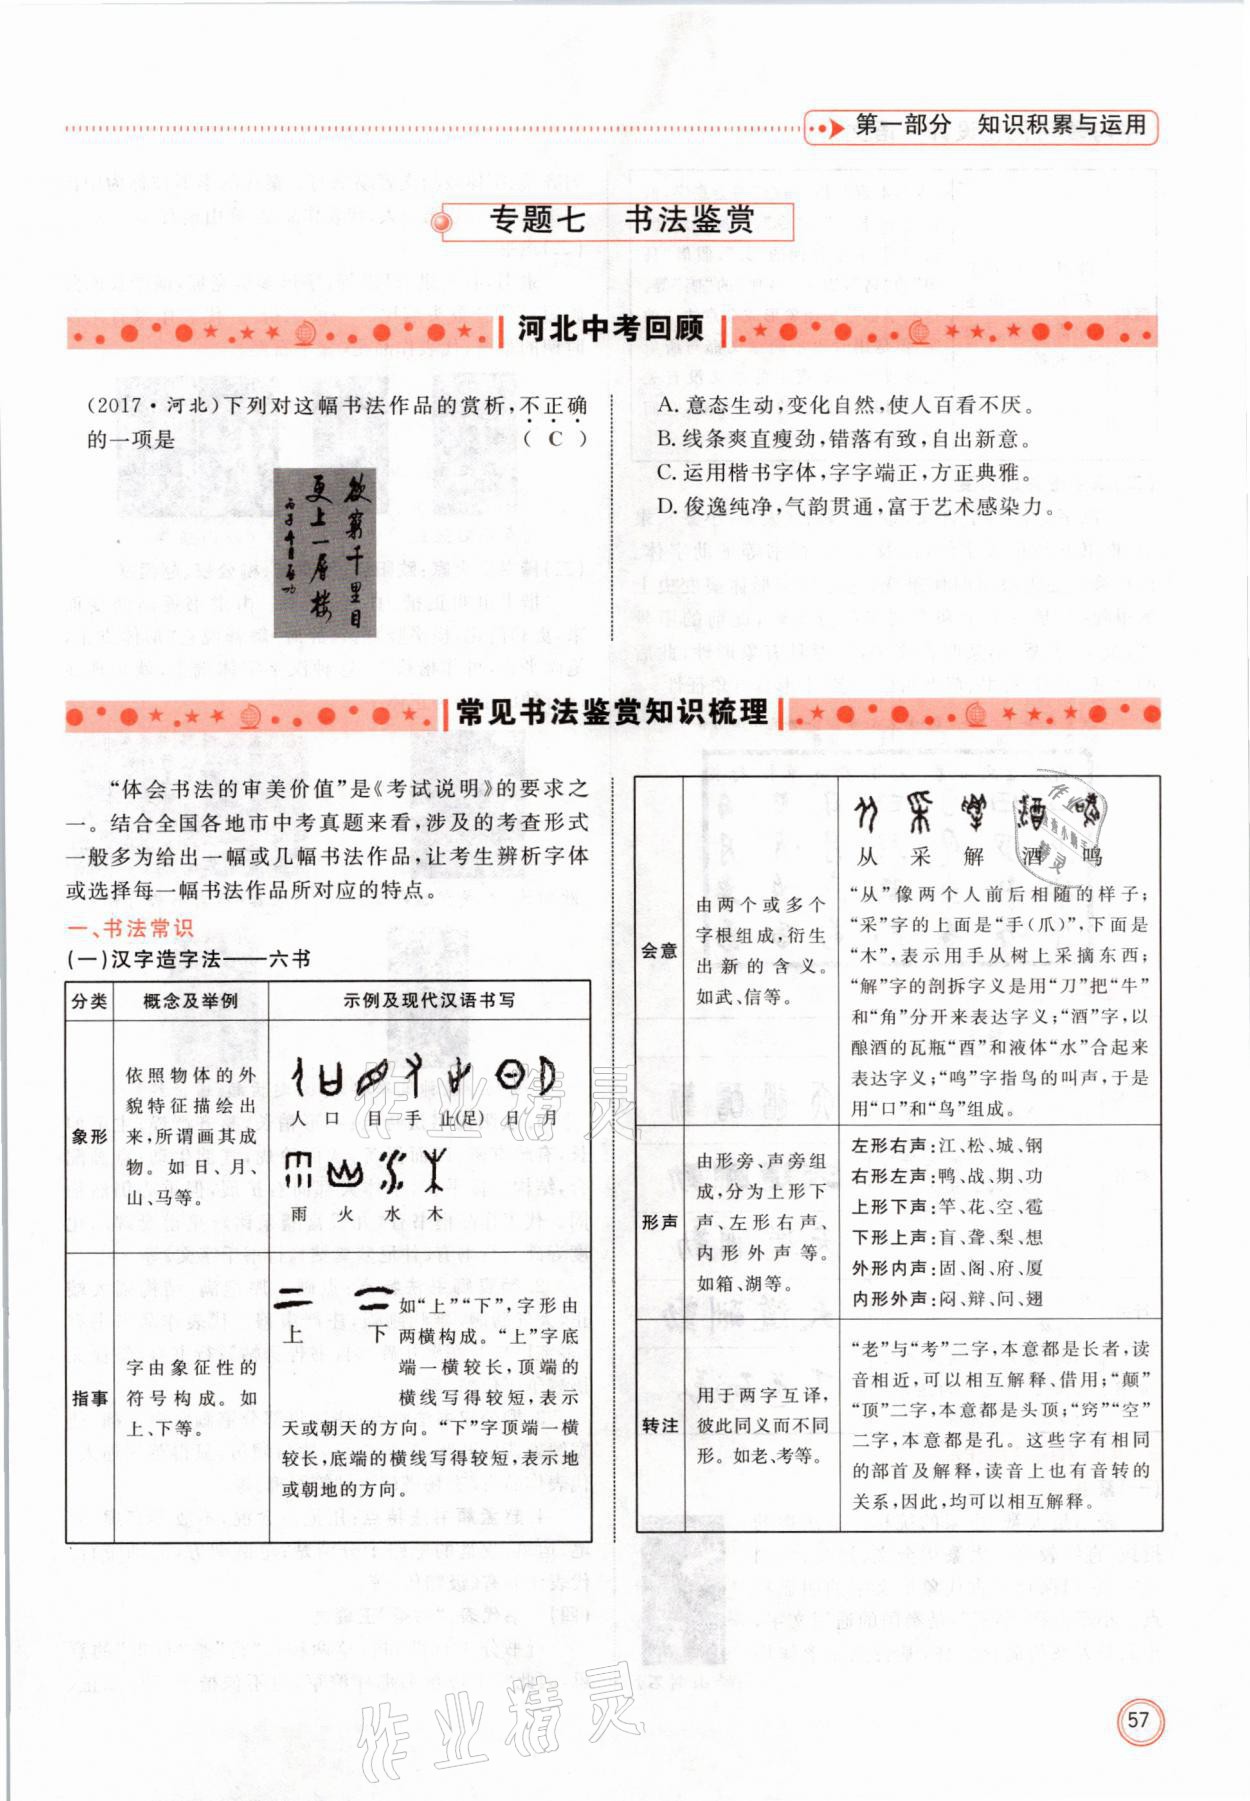 第一部分　知识积累与运用
专题七　书法鉴赏
河北中考回顾
(2017·河北)下列对这幅书法作品的赏析,不正确
的一项是　( C )
欲穷千里目
更上一层楼
A. 意态生动,变化自然,使人百看不厌。
B. 线条爽直瘦劲,错落有致,自出新意。
C. 运用楷书字体,字字端正,方正典雅。
D. 俊逸纯净,气韵贯通,富于艺术感染力。
常见书法鉴赏知识梳理
“体会书法的审美价值”是《考试说明》的要求之
一。结合全国各地市中考真题来看,涉及的考查形式
一般多为给出一幅或几幅书法作品,让考生辨析字体
或选择每一幅书法作品所对应的特点。
一、书法常识
(一)汉字造字法——六书
分类　概念及举例　示例及现代汉语书写
象形
依照物体的外
貌特征描绘出
来,所谓画其成
物。如日、月、
山、马等。
人 口 目 手 止(足) 日 月
雨 火 水 木
指事
字由象征性的
符号构成。如
上、下等。
上　下
如“上”“下”,字形由
两横构成。“上”字底
端一横较长,顶端的
横线写得较短,表示
天或朝天的方向。“下”字顶端一横
较长,底端的横线写得较短,表示地
或朝地的方向。
会意
由两个或多个
字根组成,衍生
出新的含义。
如武、信等。
从 采 解 酒 鸣
“从”像两个人前后相随的样子;
“采”字的上面是“手(爪)”,下面是
“木”,表示用手从树上采摘东西;
“解”字的剖拆字义是用“刀”把“牛”
和“角”分开来表达字义;“酒”字,以
酿酒的瓦瓶“酉”和液体“水”合起来
表达字义;“鸣”字指鸟的叫声,于是
用“口”和“鸟”组成。
形声
由形旁、声旁组
成,分为上形下
声、左形右声、
内形外声等。
如箱、湖等。
左形右声:江、松、城、钢
右形左声:鸭、战、期、功
上形下声:竿、花、空、雹
下形上声:盲、聋、梨、想
外形内声:固、阁、府、厦
内形外声:闷、辩、问、翅
转注
用于两字互译,
彼此同义而不同
形。如老、考等。
“老”与“考”二字,本意都是长者,读
音相近,可以相互解释、借用;“颠”
“顶”二字,本意都是头顶;“窍”“空”
二字,本意都是孔。这些字有相同
的部首及解释,读音上也有音转的
关系,因此,均可以相互解释。
作业精灵
作业精灵
57